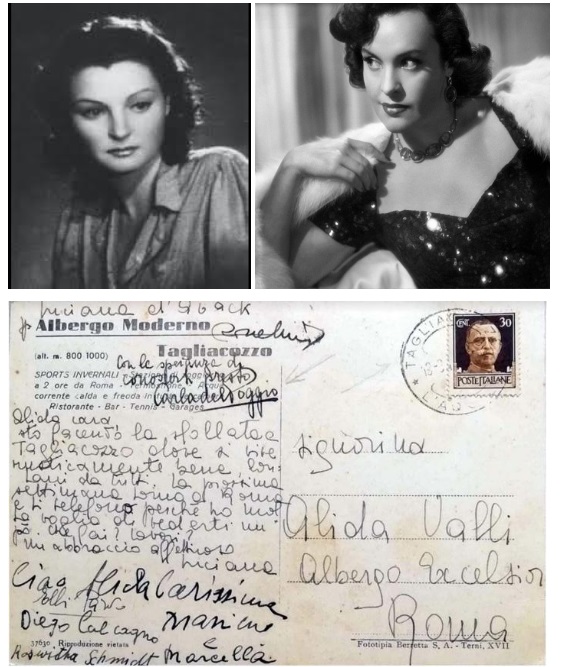 Luciana d'
Albergo Moderno
Tagliacozzo
(alt. m. 800 1000)
con la speranza di
SPORTS INVERNALI
conoscerti presto
a 2 ore da Roma
Carla del Poggio
corrente calda e fredda in
Ristorante - Bar - Tennis - Garages
Alida cara
sto facendo la sfollata a
Tagliacozzo dove si vive
rusticamente bene, lon-
tani da tutti. La prossima
settimana torno a Roma
e ti telefono perché ho molta
voglia di vederti un
po'. Che fai? lavori?
Un abbraccio affettuoso
Luciana
Ciao Alida Carissima
Diego Calcagno
Marine
e
Roswitha Schmidt
Marcella
37630 Riproduzione vietata
TAGLIA
CENT. 30
POSTE ITALIANE
Signorina
Alida Valli
Albergo Excelsior
Roma
Fototipia Berretta S. A. - Terni, XVII